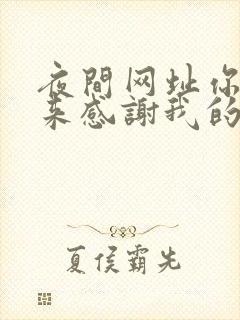 夜間网址你
来感謝我的
夏侯霸先